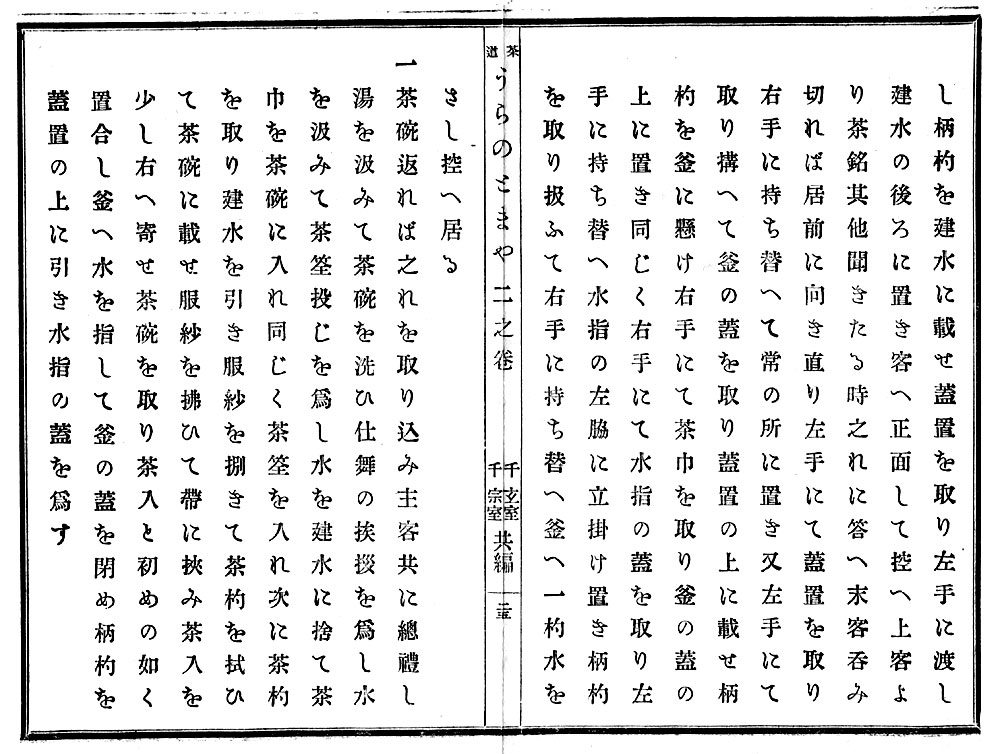 し柄杓を建水に載せ蓋置を取り左手に渡し
建水の後ろに置き客へ正面して控へ上客よ
り茶銘其他聞きたる時之れに答へ末客呑み
切れば居前に向き直り左手にて蓋置を取り
右手に持ち替へて常の所に置き又左手にて
取り搆へて釜の蓋を取り蓋置の上に載せ柄
杓を釜に懸け右手にて茶巾を取り釜の蓋の
上に置き同じく右手にて水指の蓋を取り左
手に持ち替へ水指の左脇に立掛け置き柄杓
を取り扱ふて右手に持ち替へ釜へ一杓水を
茶道
うらのとまや 二之卷
千玄室
千宗室
共編
二十五
さし控へ居る
一茶碗返れば之れを取り込み主客共に總禮し
湯を汲みて茶碗を洗ひ仕舞の挨拶を爲し水
を汲みて茶筌投じを爲し水を建水に捨て茶
巾を茶碗に入れ同じく茶筌を入れ次に茶杓
を取り建水を引き服紗を捌きて茶杓を拭ひ
て茶碗に載せ服紗を拂ひて帶に挾み茶入を
少し右へ寄せ茶碗を取り茶入と初めの如く
置合し釜へ水を指して釜の蓋を閉め柄杓を
蓋置の上に引き水指の蓋を爲す